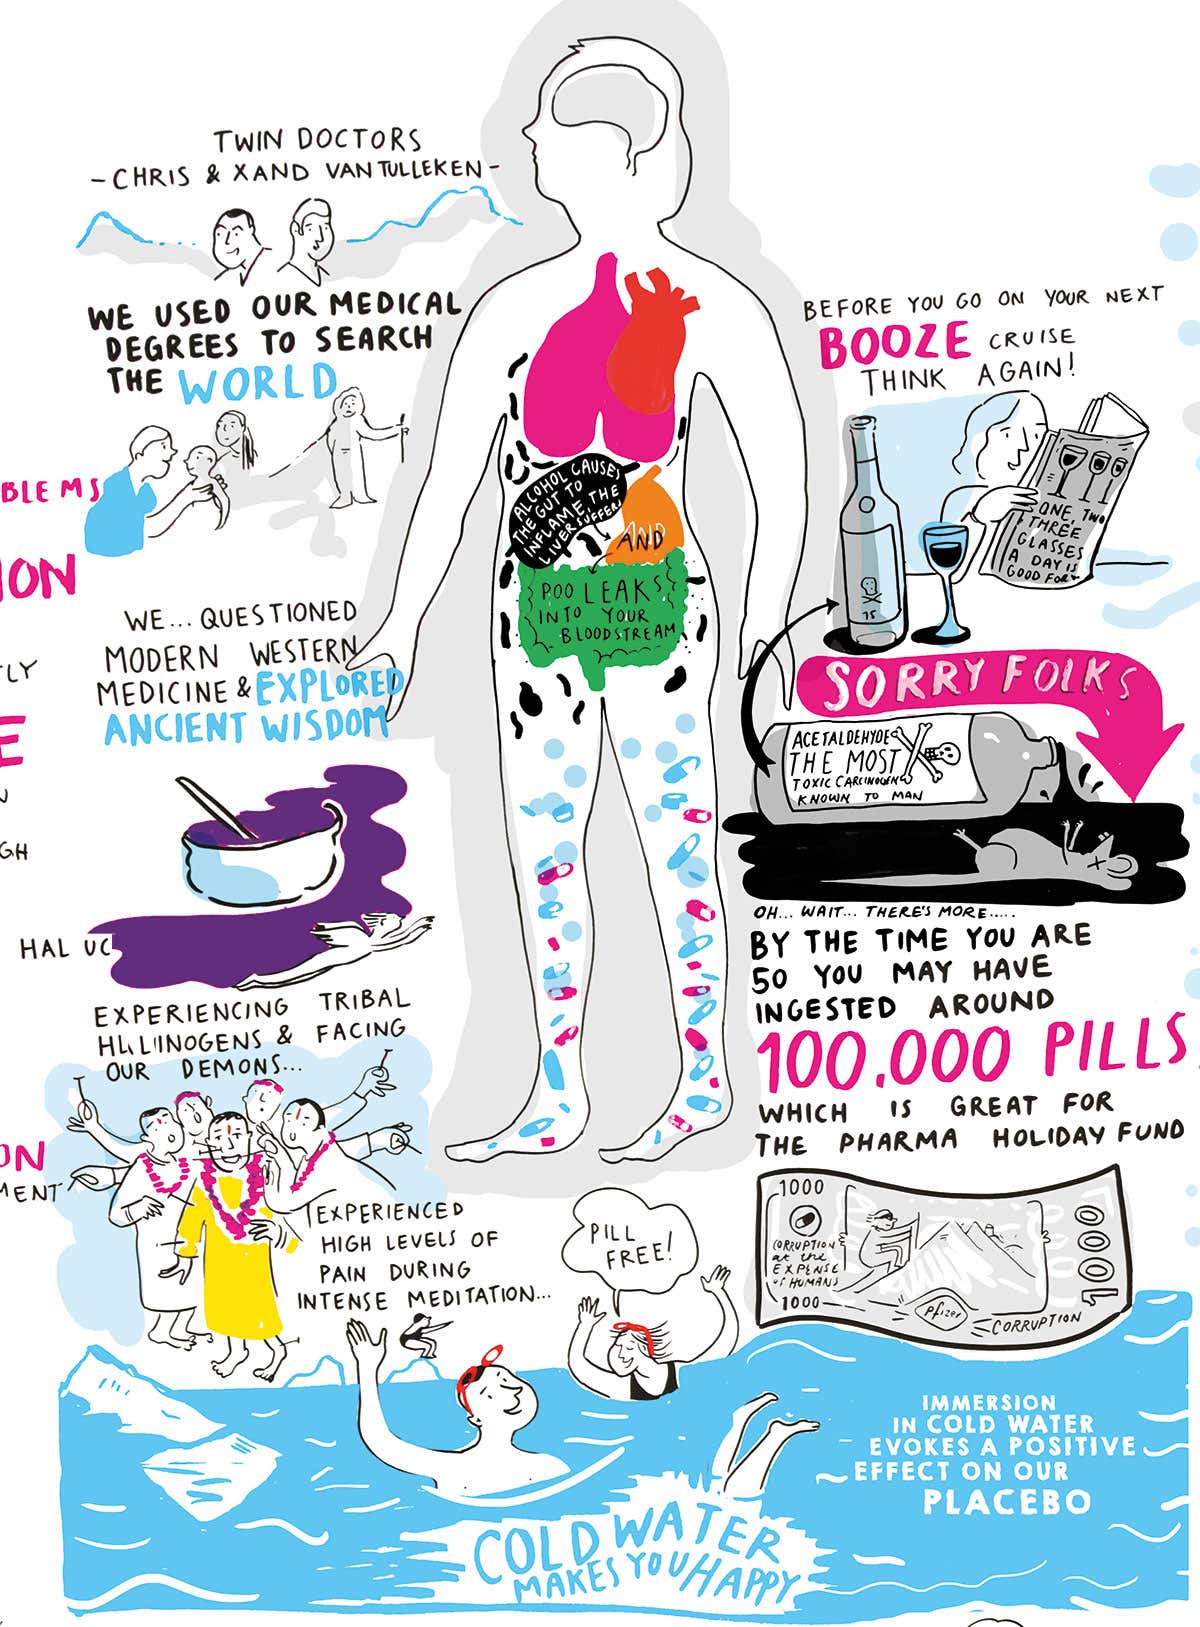 TWIN DOCTORS
- CHRIS & XAND VAN TULLEKEN -
WE USED OUR MEDICAL
DEGREES TO SEARCH
THE WORLD
BLEMS
ION
WE... QUESTIONED
MODERN WESTERN
MEDICINE & EXPLORED
ANCIENT WISDOM
TLY
E
N
GH
HAL UC
EXPERIENCING TRIBAL
& FACING
OUR DEMONS...
ON
MENT
EXPERIENCED
HIGH LEVELS OF
PAIN DURING
INTENSE MEDITATION...
ALCOHOL CAUSES
THE GUT TO
INFLAME, THE
LIVER SUFFERS
AND
POO LEAKS
INTO YOUR
BLOODSTREAM
BEFORE YOU GO ON YOUR NEXT
BOOZE CRUISE
THINK AGAIN!
ONE, TWO
THREE
GLASSES
A DAY IS
GOOD FOR
15
SORRY FOLKS
ACETALDEHYDE
THE MOST
TOXIC CARCINOGEN
KNOWN TO MAN
OH... WAIT... THERE'S MORE.....
BY THE TIME YOU ARE
50 YOU MAY HAVE
INGESTED AROUND
100,000 PILLS
WHICH IS GREAT FOR
THE PHARMA HOLIDAY FUND
1000
CORRUPTION
at the
EXPENSE
OF HUMANS
1000
Pfizer
CORRUPTION
1000
PILL
FREE!
IMMERSION
IN COLD WATER
EVOKES A POSITIVE
EFFECT ON OUR
PLACEBO
COLD WATER
MAKES YOU HAPPY